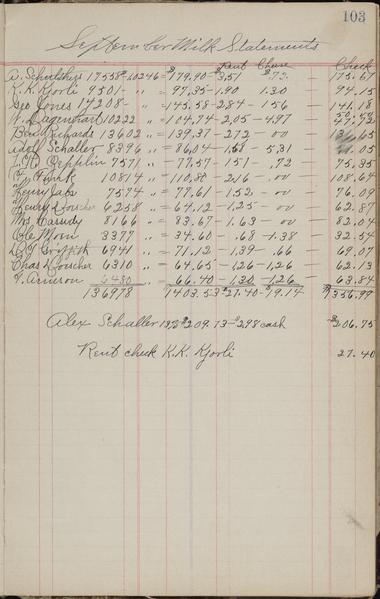 103
September Milk Statements
Rent Chese Check
A. 17558# .010246 = $179.90 - 3.51 $.72 - 175.67
K. K. Kjorli 9501 - " = 97.35 - 1.90 1.30 - 94.15
Geo Jones 14208 - " = 145.58 - 2.84 - 1.56 - 141.18
W. Hagenhart 10222 - " = 104.74 - 2.05 - 4.97
Ben 13602 " = 139.37 - 2.72 - 00
Adolf Schaller 8396 " = 86.04 - 1.68 - 5.31
7571 " = 77.57 - 1.51 - .72 - 75.35
10814 " = 110.80 - 2.16 - 00 - 108.64
Henry 7574 " = 77.61 - 1.52 - 00 - 76.09
Henry Voucher 6258 " = 64.12 - 1.25 - 00 - 62.87
Cassidy 8166 " = 83.67 - 1.63 - 00 - 82.04
Ole Moen 3377 " = 34.60 - .68 - 1.38 - 32.54
Griffith 6941 " = 71.12 - 1.39 - .66 - 69.07
Chas Voucher 6310 " = 64.65 - 1.26 - 1.26 - 62.13
T. Arneson 6480 " = 66.40 - 1.30 - 1.26 - 63.84
136978 1403.53 - $27.40 - $19.14 $1356.99
Alex Schaller $209.73 - $2.98 cash - $206.75
Rent check K. K. Kjorli 27.40